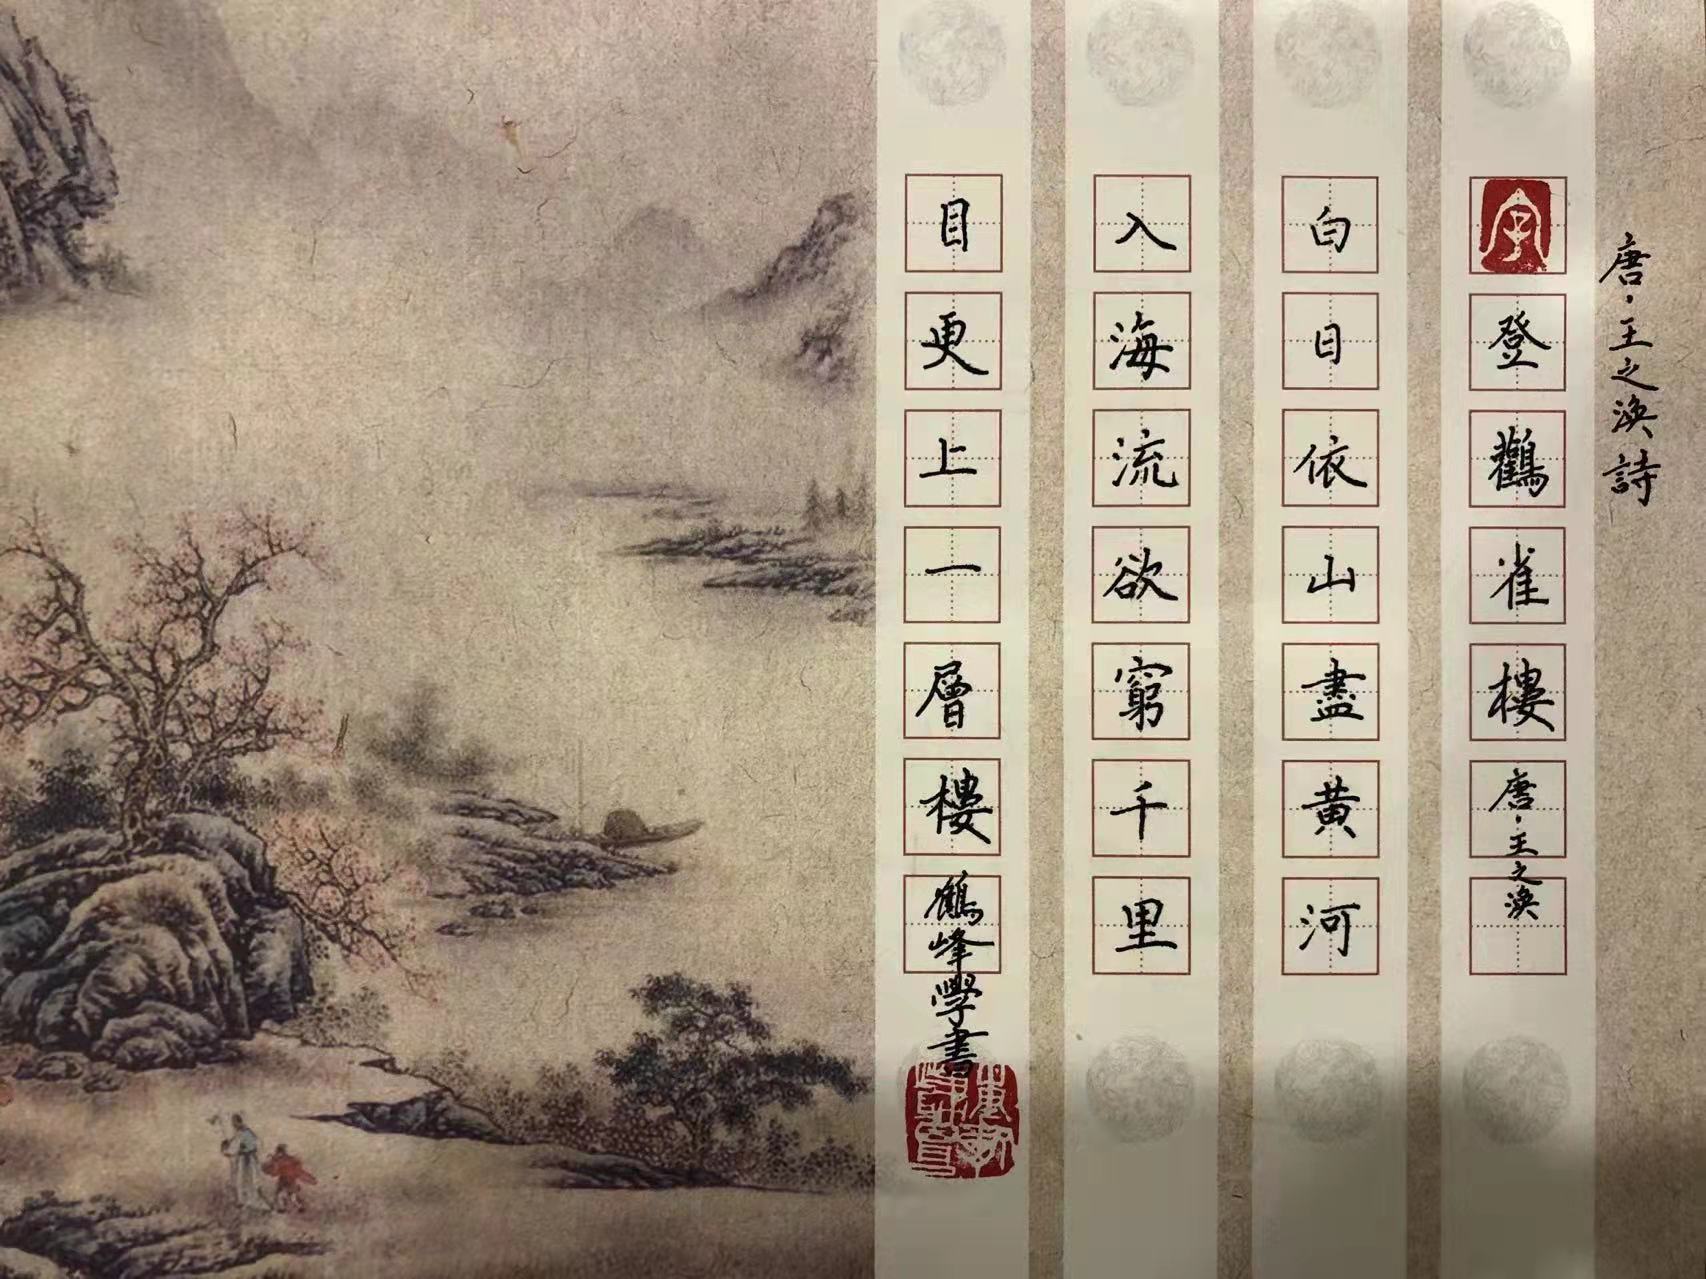 唐·王之渙詩
登鸛雀樓 唐·王之渙
白日依山盡黃河
入海流欲窮千里
目更上一層樓 鶴峰學書